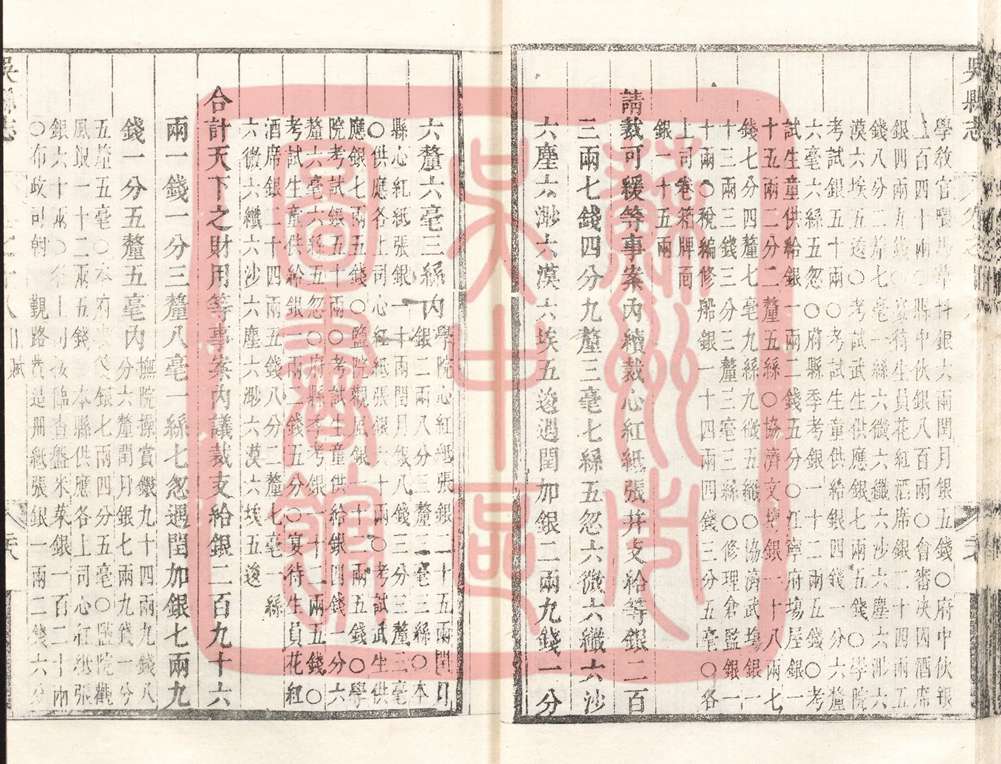 吳縣志
學教官科銀大兩閏月銀五錢○府中伙銀
一百四十兩○縣中伙銀八百兩○會審決囚酒席
銀四兩四錢○宴待生員花紅酒席銀二十四兩五
錢八分二釐七毫一絲六微六纖六沙六塵六渺六
漠六埃五逡○考試武生供應銀七兩五錢○學院
考試銀五十兩○考試生童供給銀四錢一分六釐
六毫六絲五忽○府縣季考銀一十二兩五錢○考
試生童供給銀一兩二錢五分○江寧府場屋銀
十五兩二分二釐五絲○協濟文場銀一十八兩七
錢七分四釐七毫九絲九微○協濟武場銀一
十三兩三錢三分三釐三毫三絲○修理倉監銀一
十兩○稅編修船銀一十四兩四錢三分五毫○各
上司卷箱牌面
銀一十五兩
請裁可緩等事案內續裁心紅紙張并支給等銀二百
三兩七錢四分九釐三毫七絲五忽六微六纖六沙
六塵六渺六漠六埃五逡遇閏加銀二兩九錢一分
六釐六毫三絲內
學院心紅紙張銀二十五兩閏月
銀二兩八分三釐三毫三絲○本
縣心紅紙張銀二十兩閏月銀八錢三分三釐三毫
○供應各上司心紅紙張銀六十兩○考試武生供
應銀七兩五錢○監院觀風銀一十兩五錢○學
院考試銀五十兩○考試生童供給銀四錢一分六
釐六毫六絲五忽○府縣季考銀一十二兩五錢○
考試生童供給銀一兩五分○宴待生員花紅
酒席銀二十四兩五錢八分二釐七毫一絲
六微六纖六沙六塵六渺六漠六埃五逡
合計天下之財用等事案內議裁支給銀二百九十六
兩一錢一分三釐八毫一絲七忽遇閏加銀七兩九
錢一分五釐五毫內
撫院操賞銀九十四兩九錢八
分六釐閏月銀七兩九錢一分
五釐五毫○本府銀七兩四錢五分五毫○監院觀
風銀一十二兩五錢○本縣供應各上司心紅紙張
銀六十兩○上司按臨查盤米菜銀一百二十兩
○布政司朝覲路費造冊紙張銀一兩二錢六分
吳縣志